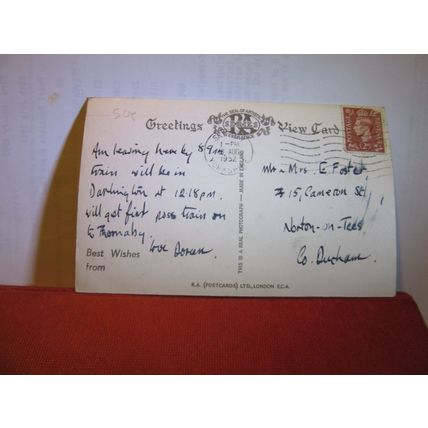 50p
THE SEAL OF ARTISTIC
Greetings RA SERIES View Card
EXCELLENCE
1-PM
AUG
1952
POSTAGE
Am leaving here by 8.9am
train will be in
Darlington at 12.18pm.
will get first poss train on
to Thornaby.
love Doreen.
Best Wishes
from
THIS IS A REAL PHOTOGRAPH — MADE IN ENGLAND
Mr & Mrs. E Foster
15, Cameron St
Norton-on-Tees
Co. Durham.
R.A. (POSTCARDS) LTD., LONDON E.C.4.